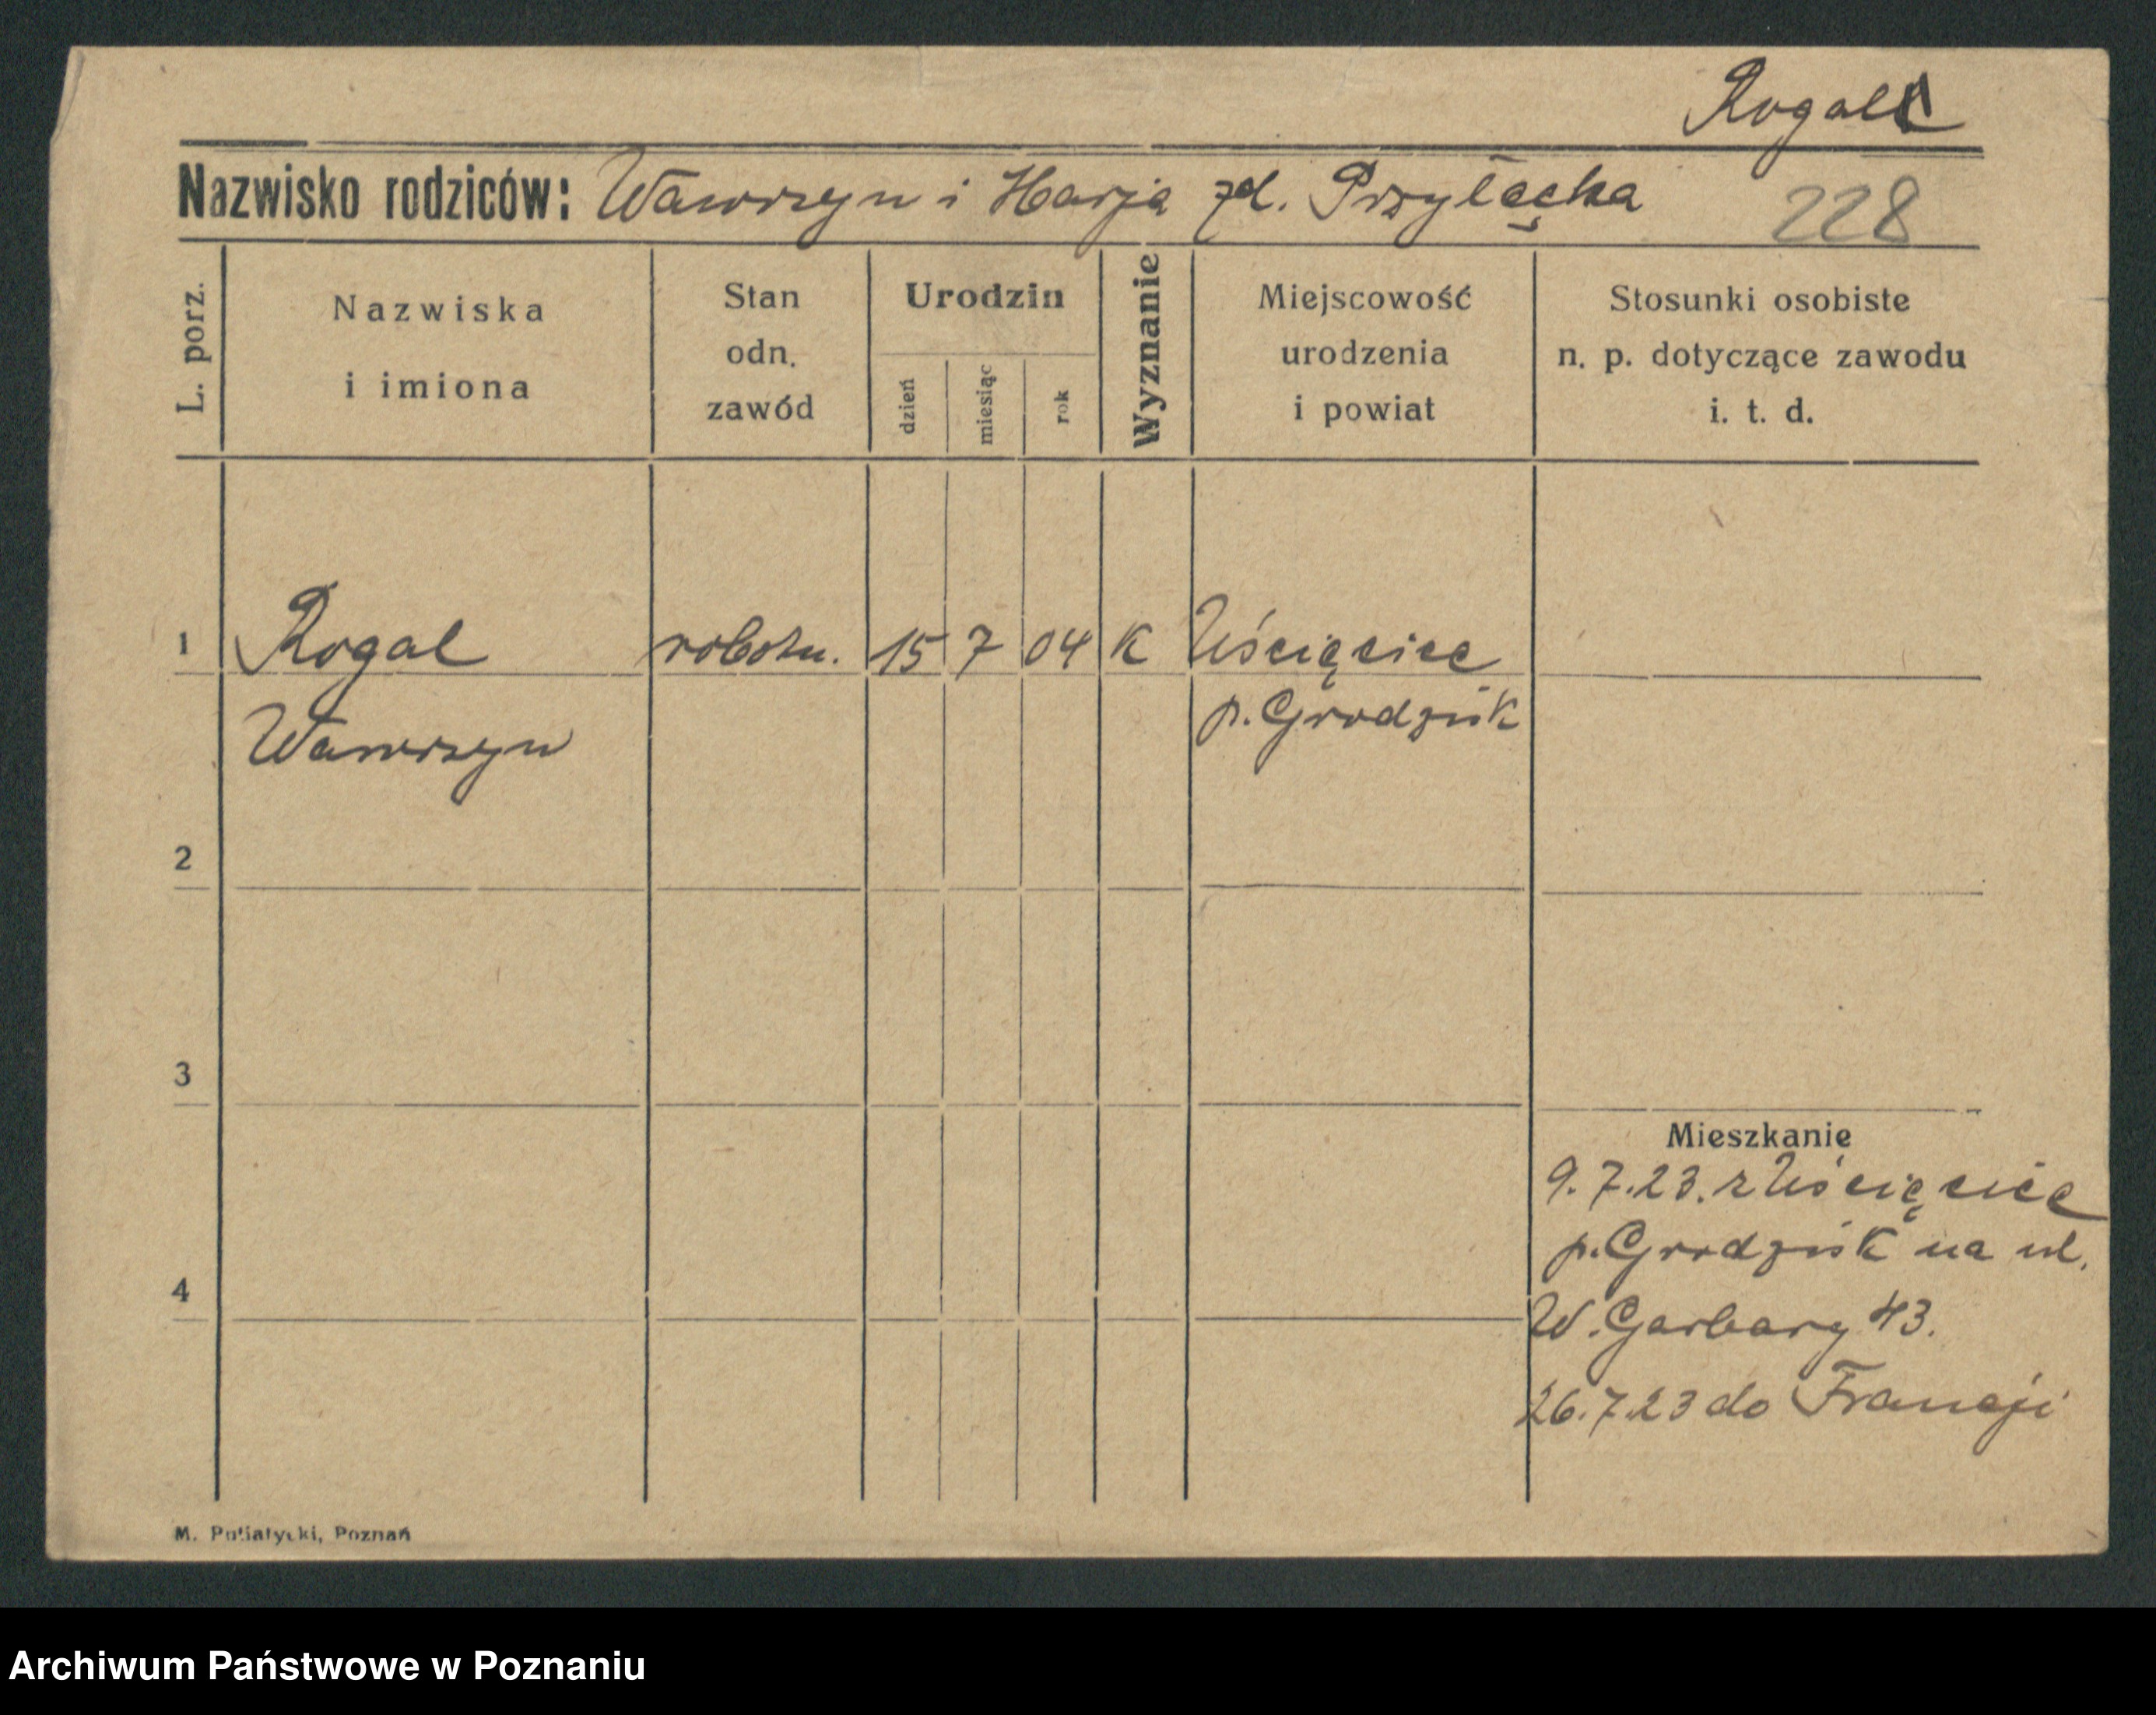 Rogal
Nazwisko rodziców: Wawrzyn i Marja zd. Przyłęcka 228
L. porz.
Nazwiska i imiona
Stan odn. zawód
Urodzin
dzień
miesiąc
rok
Wyznanie
Miejscowość urodzenia i powiat
Stosunki osobiste n. p. dotyczące zawodu i. t. d.
1 Rogal robotn. 15 7 04 K Uścięcice
Wawrzyn p. Grodzisk
2
3
Mieszkanie
9.7.23. z Uścięcice
p. Grodzisk na ul.
4
W. Garbary 43.
26.7.23 do Francji
M. Putiatycki, Poznań
Archiwum Państwowe w Poznaniu